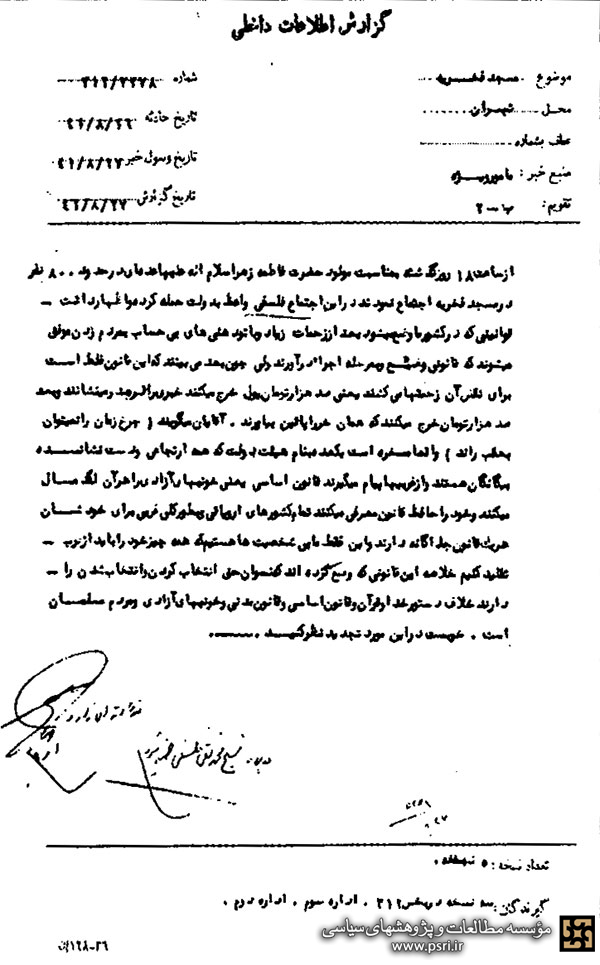 گزارش اطلاعات داخلی
موضوع : مسجد فخریه
شماره ۳۱۲/۲۲۷۸
محل : شهران
تاریخ حادثه ۴۱/۸/۲۶
عطف بشماره
تاریخ وصول خبر ۴۱/۸/۲۷
منبع خبر : مامور ویژه
تاریخ گزارش ۴۱/۸/۲۷
تقویم : ب - ۲
از ساعت ۱۸ روز گذشته بمناسبت مولود حضرت فاطمه زهرا سلام اله علیها عده‌ای در حدود ۸۰۰ نفر
در مسجد فخریه اجتماع نمودند در این اجتماع فلسفی واعظ بدولت حمله کرد و اظهار داشت -
قوانینی که در کشور ما وضع میشود بعد از زحمات زیاد و با تودهنی های بی حساب بمردم زدن موفق
میشوند که قانونی وضع و بمرحله اجرا در آورند ولی چون بعد می بینند که این قانون غلط است
برای نقض آن زحمتها می کنند یعنی صد هزار تومان پول خرج میکنند خر روی را مینشانند و بعد
صد هزار تومان خرج میکنند که همان خر را پائین بیاورند . آقایان میگویند ( چرخ زمان را نمیتوان
بعقب راند ) واقعا مسخره است یکعده بنام هیئت دولت که همه ارتجاعی و دست نشانده
بیگانگان هستند و از غریبها پیام میگیرند قانون اساسی یعنی خونبهای آزادی را هر آن لگد مال
میکنند و خود را حافظ قانون معرفی میکنند تمام کشورهای اروپائی و بطور کلی غربی برای خودشان
هریک قانون جداگانه دارند و این فقط ما بی شخصیت ها هستیم که همه چیز خود را باید از غرب -
تقلید کنیم خلاصه این قانونی که وضع کرده اند که نسوان حق انتخاب کردن و انتخاب شدن را -
دارند خلاف دستور خدا و قرآن و قانون اساسی و قانون مدنی و خونبهای آزادی و مردم مسلمان
است . خوبست در این مورد تجدید نظر کنید
در پرونده شیخ محمد تقی فلسفی ضمیمه شود
تعداد نسخه : ۵ نسخه .
گیرندگان : سه نسخه در بخش ۳۱۲ . اداره سوم . اداره دوم .
۲۶-۱۲۸ان
مؤسسه مطالعات و پژوهشهای سیاسی
www.psri.ir